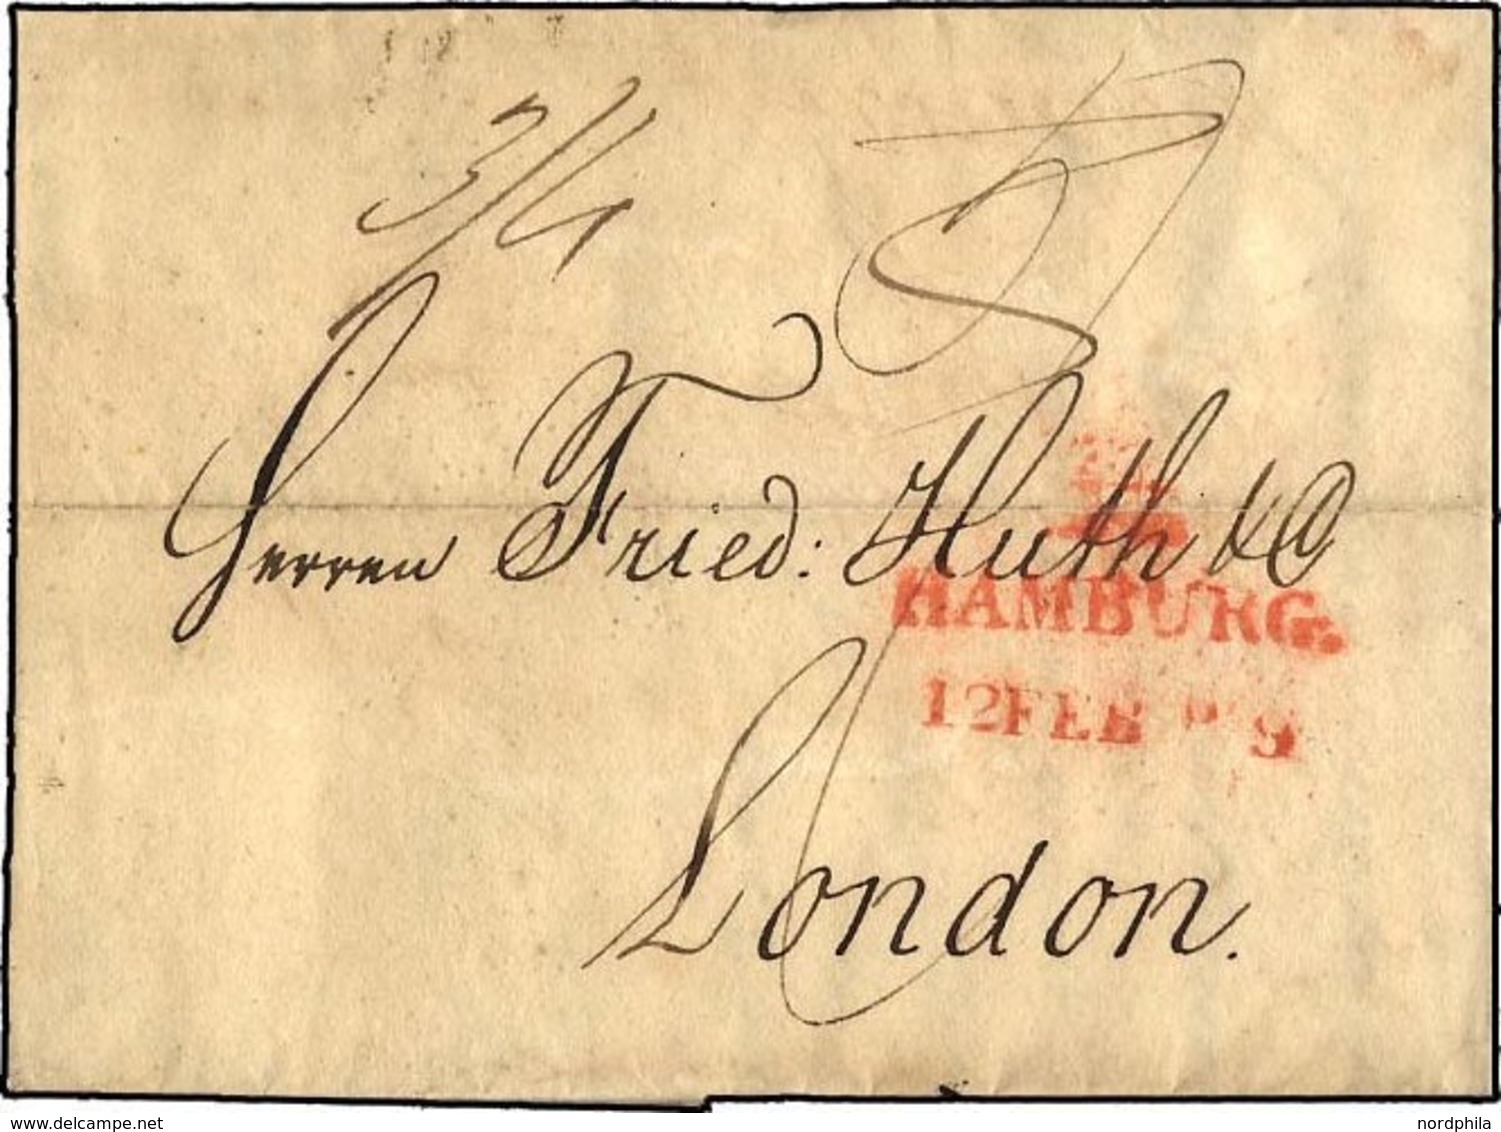 3/4
Herren Fried: Huth & Co
HAMBURG.
12 FEB 9
London.
www.delcampe.net
nordphila